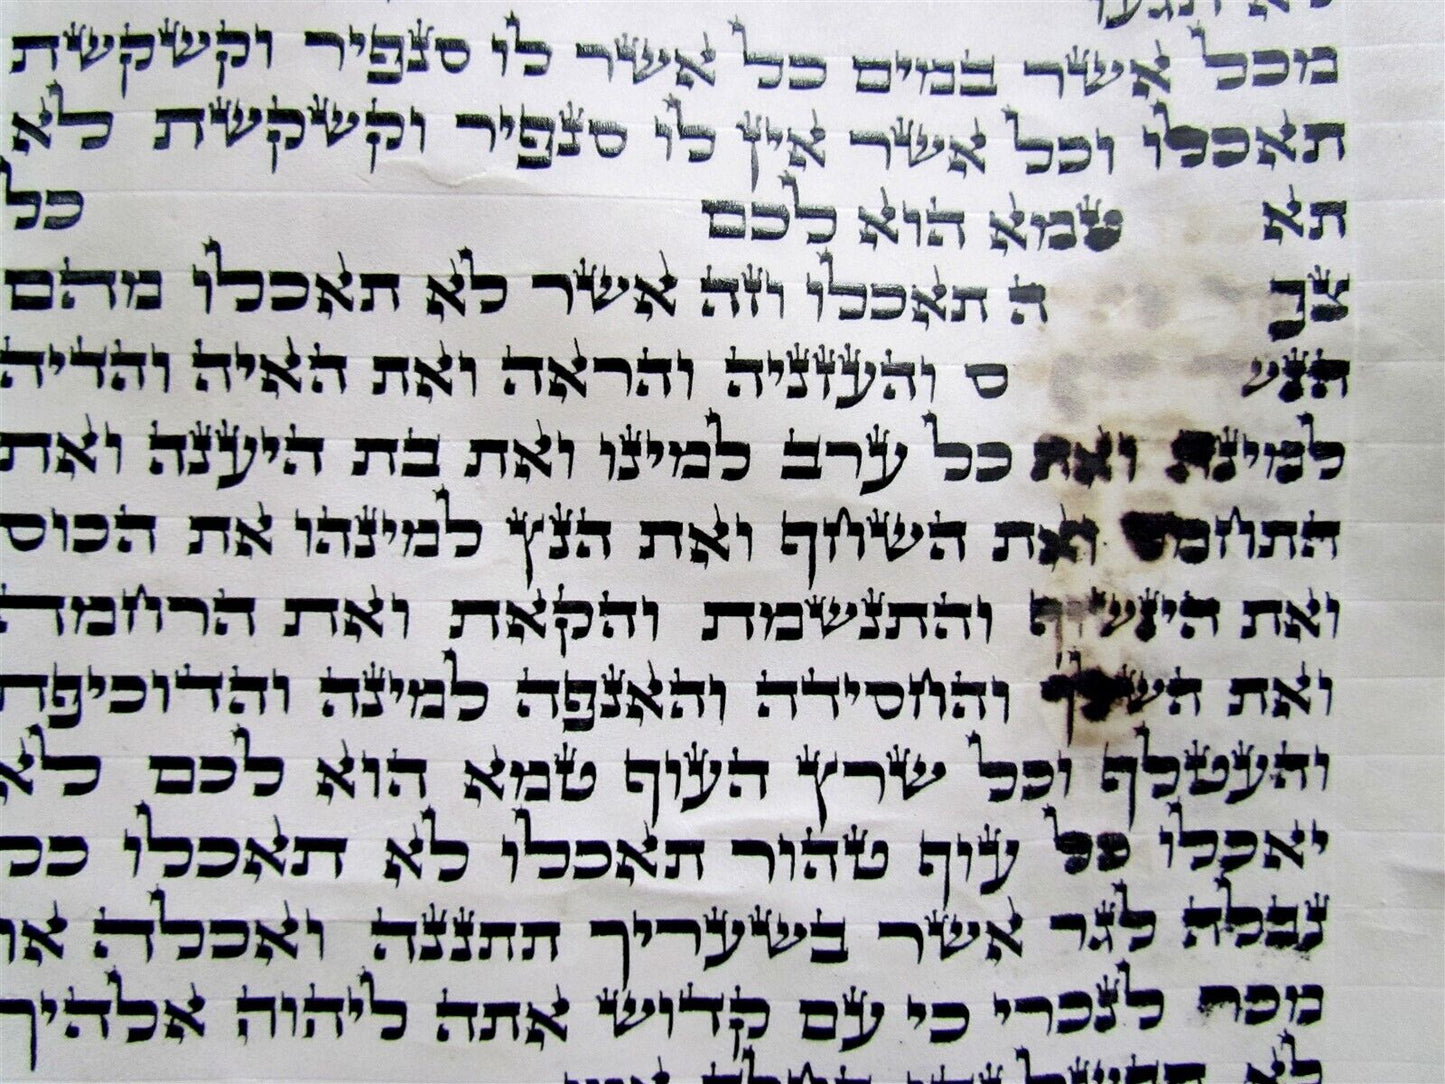 לא תגעו
מכל אשר במים כל אשר לו סנפיר וקשקשת
תאכלו וכל אשר אין לו סנפיר וקשקשת לא
תא טמא הוא לכם כל
תאכלו וזה אשר לא תאכלו מהם
והעזניה והראה ואת האיה והדיה
למינה ואת כל ערב למינו ואת בת היענה ואת
התחמס ואת השחף ואת הנץ למינהו את הכוס
ואת הינשוף והתנשמת והקאת ואת הרחמה
ואת השלך והחסידה והאנפה למינה והדוכיפת
והעטלף וכל שרץ העוף טמא הוא לכם לא
יאכלו כל עוף טהור תאכלו לא תאכלו כל
נבלה לגר אשר בשעריך תתננה ואכלה או
מכר לנכרי כי עם קדוש אתה ליהוה אלהיך